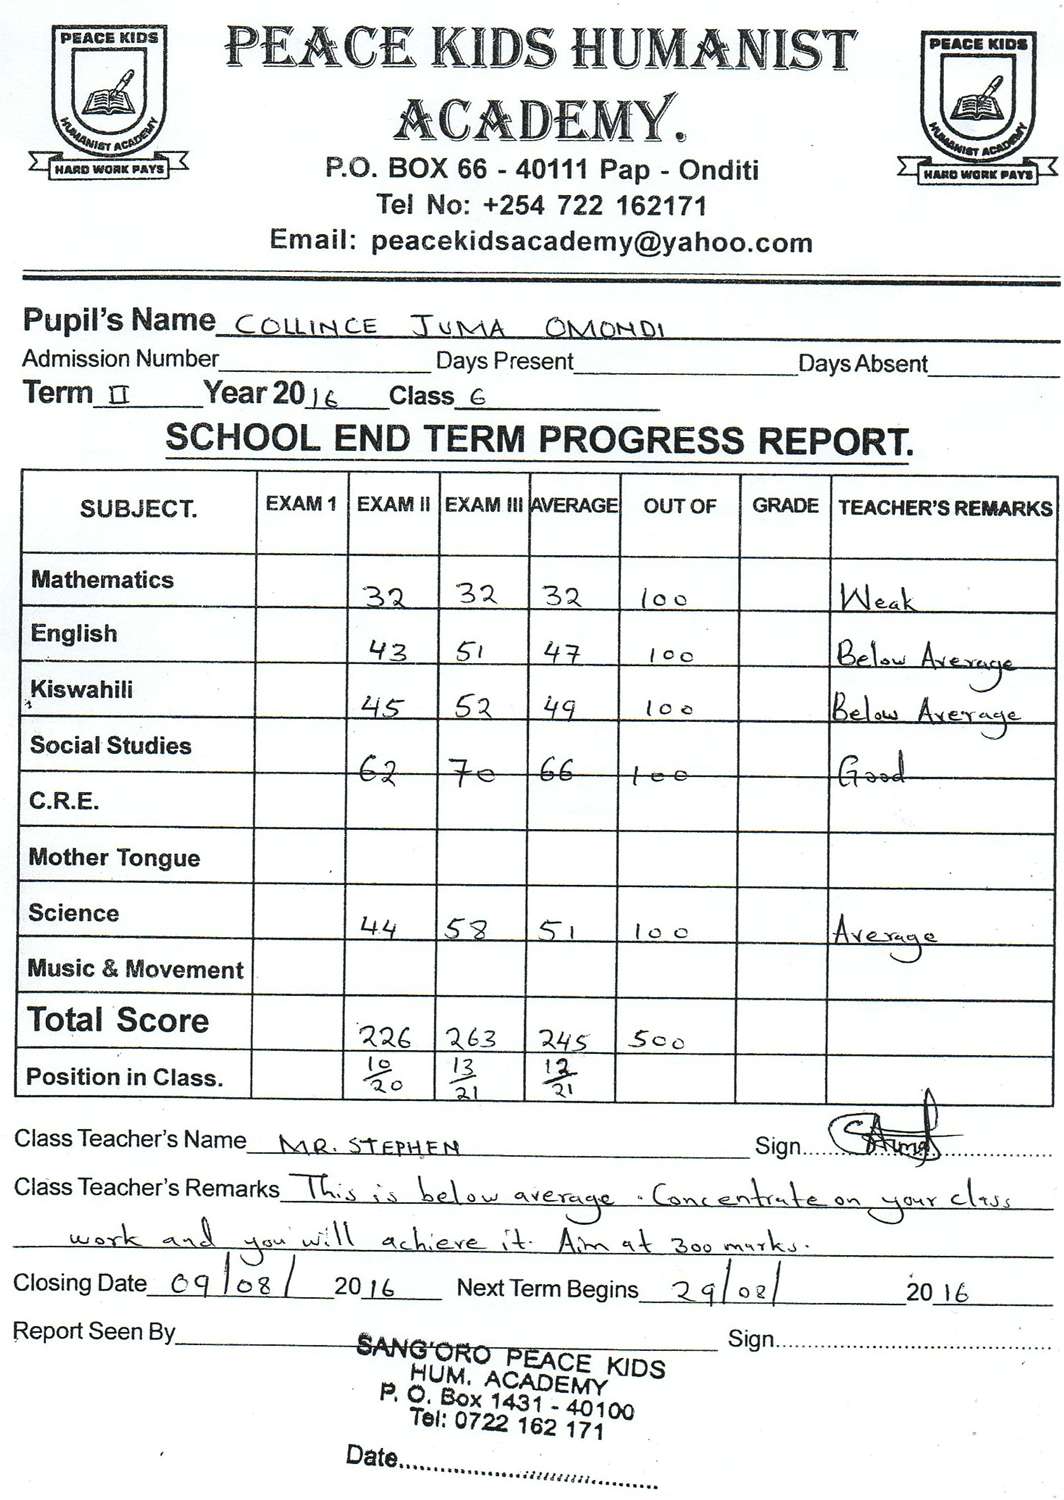 PEACE KIDS
HUMANIST ACADEMY
HARD WORK PAYS
PEACE KIDS HUMANIST
ACADEMY.
PEACE KIDS
HUMANIST ACADEMY
HARD WORK PAYS
P.O. BOX 66 - 40111 Pap - Onditi
Tel No: +254 722 162171
Email: peacekidsacademy@yahoo.com
Pupil's Name COLLINCE JUMA OMONDI
Admission Number Days Present Days Absent
Term II Year 2016 Class 6
SCHOOL END TERM PROGRESS REPORT.
SUBJECT. EXAM 1 EXAM II EXAM III AVERAGE OUT OF GRADE TEACHER'S REMARKS
Mathematics 32 32 32 100 Weak
English 43 51 47 100 Below Average
Kiswahili 45 52 49 100 Below Average
Social Studies 62 70 66 100 Good
C.R.E.
Mother Tongue
Science 44 58 51 100 Average
Music & Movement
Total Score 226 263 245 500
Position in Class. 10/20 13/21 12/21
Class Teacher's Name MR. STEPHEN Sign
Class Teacher's Remarks This is below average. Concentrate on your class
work and you will achieve it. Aim at 300 marks.
Closing Date 09/08/ 2016 Next Term Begins 29/08/ 2016
Report Seen By Sign
SANG'ORO PEACE KIDS
HUM. ACADEMY
P. O. Box 1431 - 40100
Tel: 0722 162 171
Date